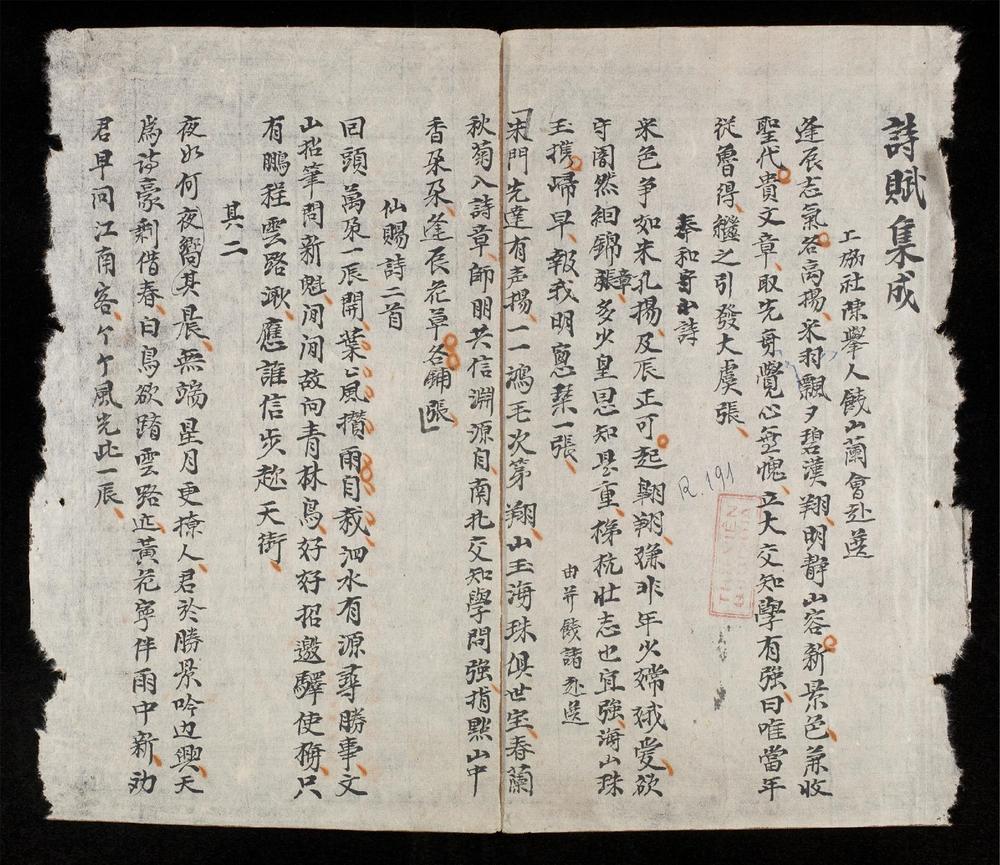 詩賦集成
工𤷱社陳舉人餞山蘭會赴選
逢辰志氣各高揚、采羽飄夕碧漢翔、明靜山容新景色、兼收
聖代貴文章、取先哥覺心無愧、立大交知學有強、曰唯當年
從魯得、繼之引發大虞張、
奉和寄小詩
米色爭如米孔揚、及辰正可起翱翔、嫌非年少嫦娥愛、欲
守闇然絅錦章、多少皇恩知是重、梯杭壯志也宜強、海山珠
玉携歸早、報我明窻槼一張、
由芹餞諸赴選
宋門先達有声揚、一一鴻毛次第翔、山玉海珠俱世宝、春蘭
秋菊入詩章、師朋共信淵源自、南北交知學問強、指點山中
香朶朶、逢辰花草各鋪張、
仙賜詩二首
回頭萬象一辰開、葉〻風攢雨自裁、泗水有源尋勝事、文
山招筆問新魁、澗澗故向青林鳥、好好招邀驛使梅、只
有鵬程雲路濶、應誰信步趂天街、
其二
夜如何夜嚮其晨、無端星月更撩人、君於勝景吟边興、天
為詩豪剩借春、白鳥欲躋雲路迩、黃花寧伴雨中新、劝
君早问江南客、个个風光此一辰、
R.191